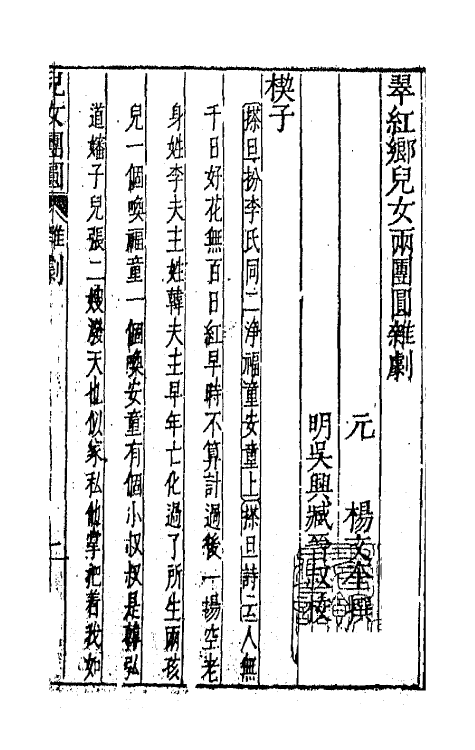 翠紅鄉兒女兩團圓雜劇
元 楊文奎撰
明吳興臧晉叔校
楔子
搽旦扮李氏同二淨福童安童上搽旦詩云人無
千日好花無百日紅早時不算計過後一場空老
身姓李夫主姓韓夫主早年亡化過了所生兩孩
兒一個喚福童一個喚安童有個小叔叔是韓弘
道嬸子兒張二嫂潑天也似家私他掌把着我如
兒女團圓 雜劇 一